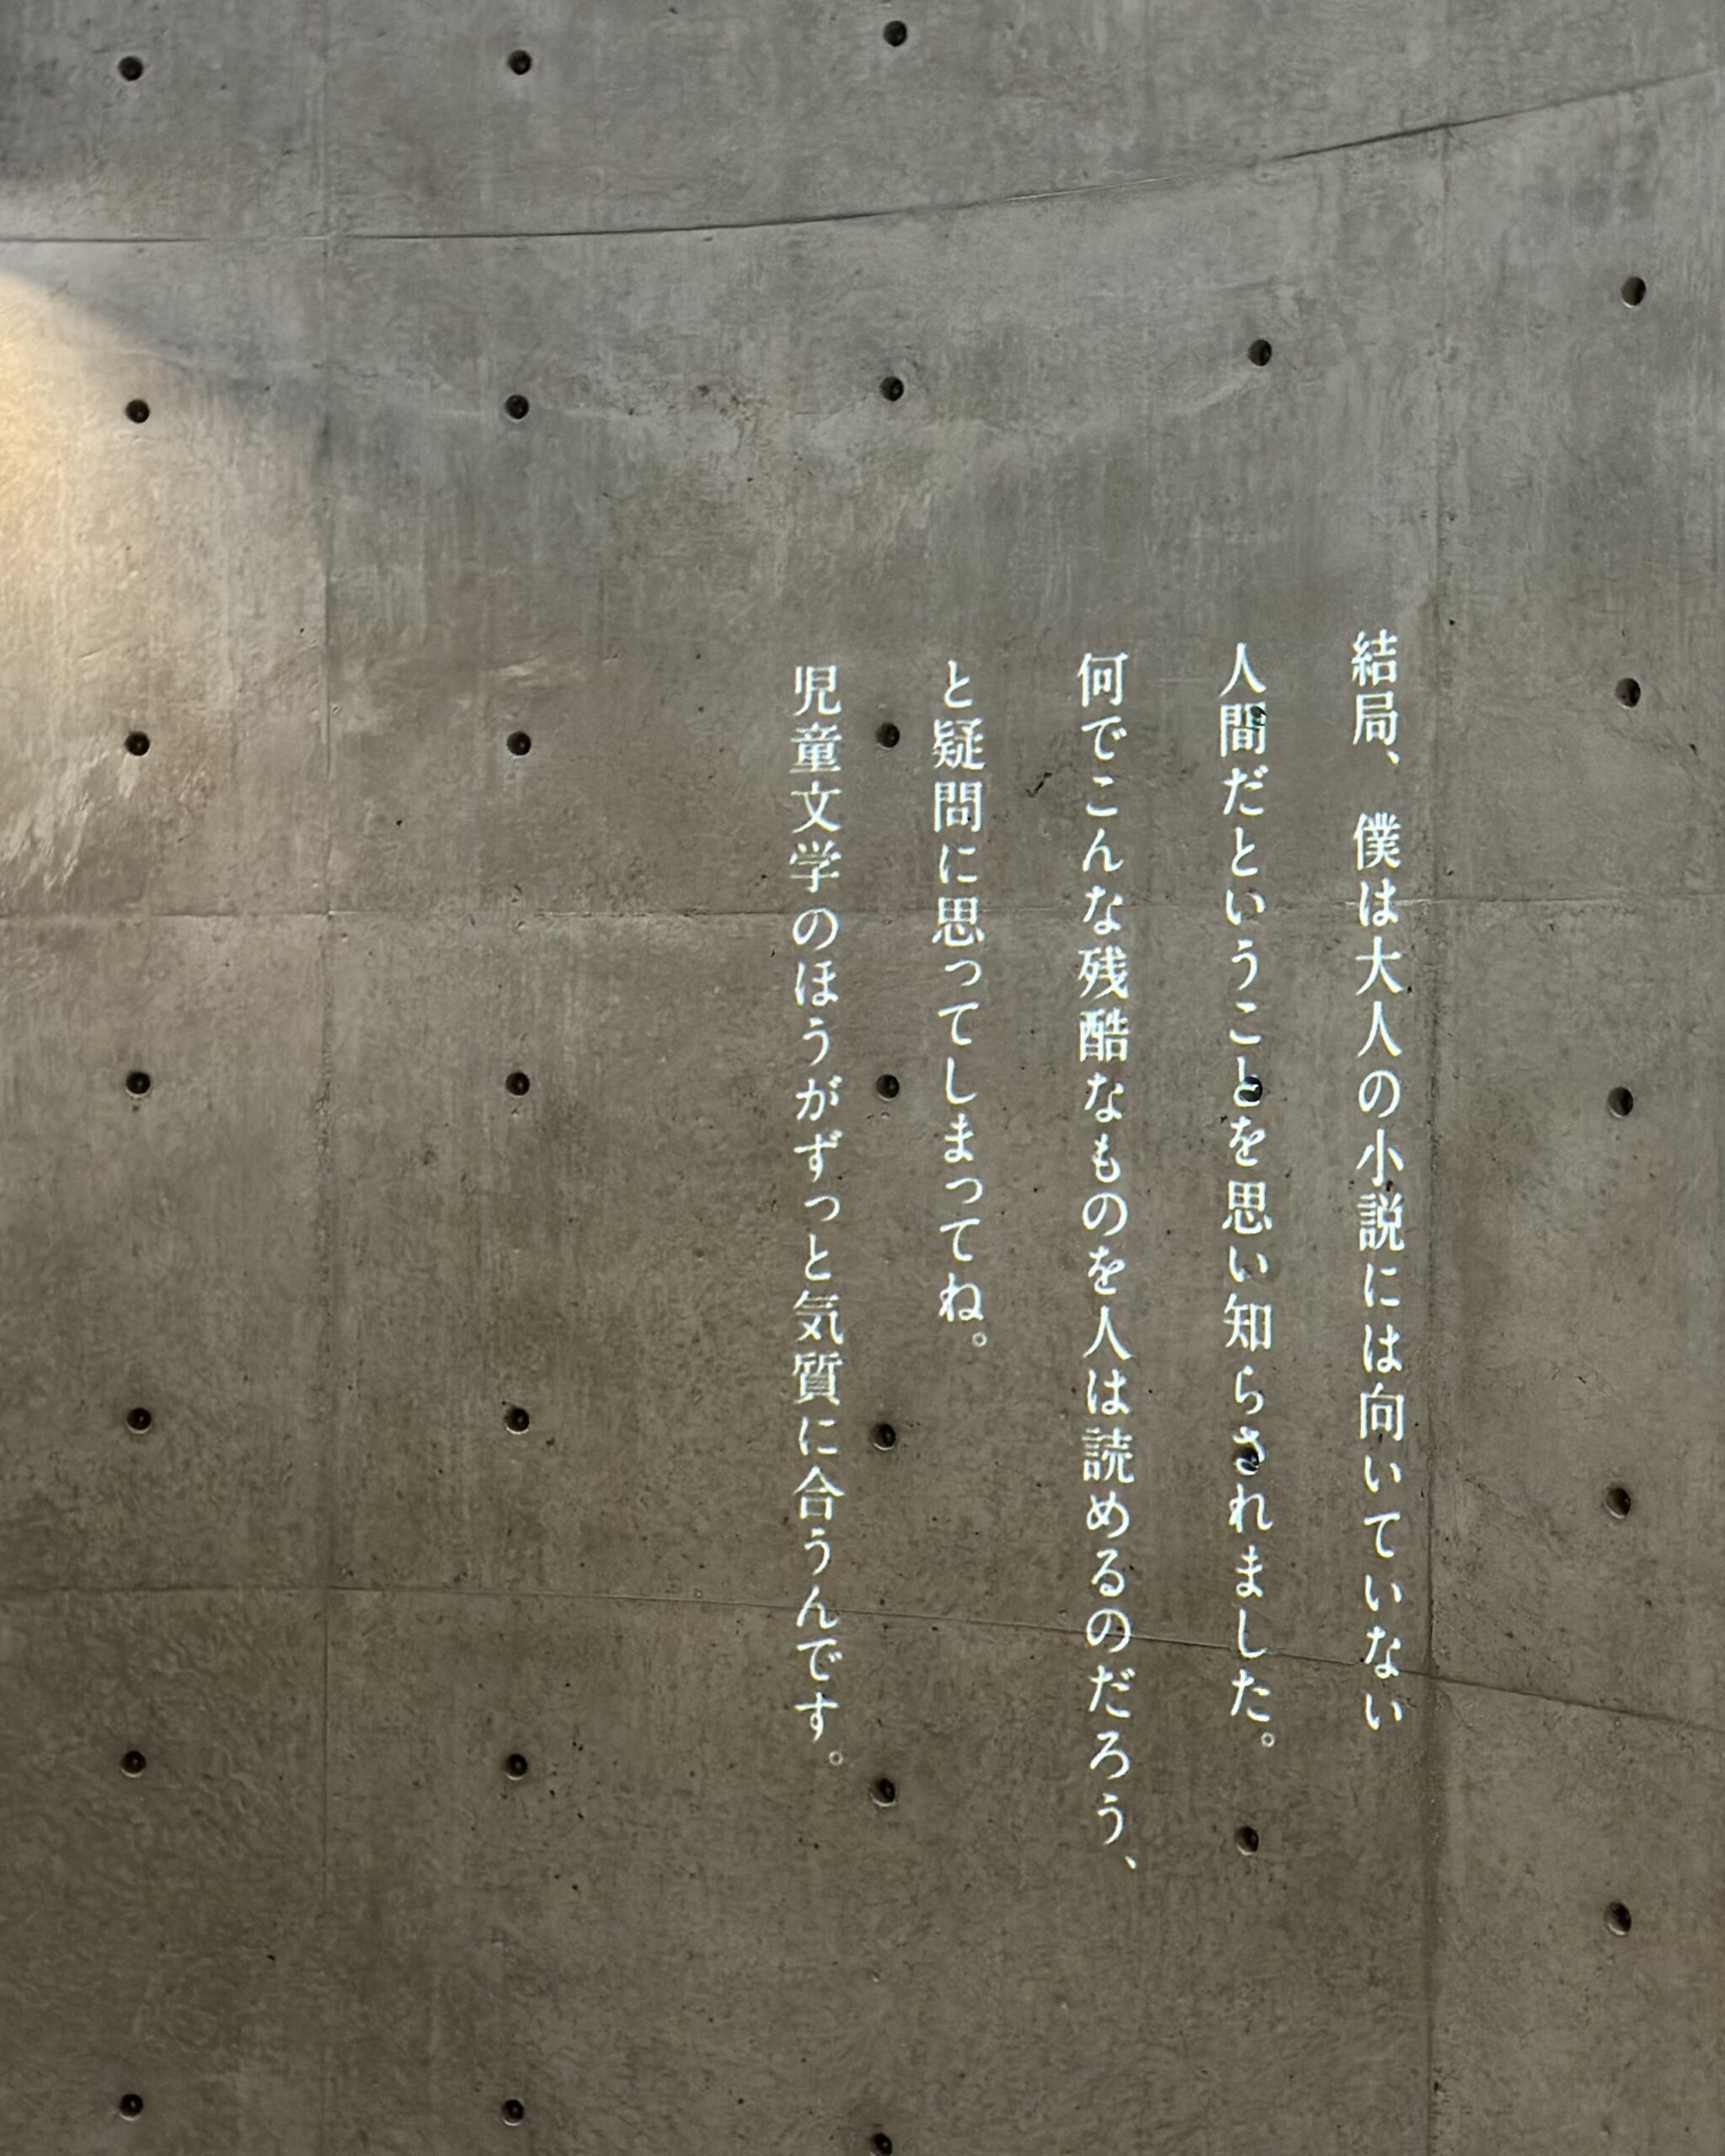 結局、僕は大人の小説には向いていない
人間だということを思い知らされました。
何でこんな残酷なものを人は読めるのだろう、
と疑問に思ってしまってね。
児童文学のほうがずっと気質に合うんです。